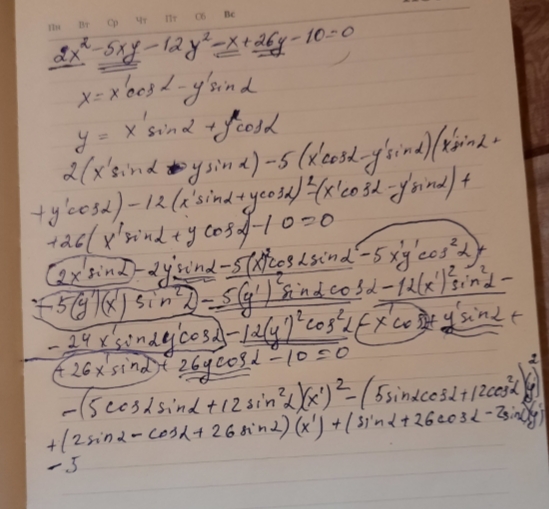 Пн Вт Ср Чт Пт Сб Вс
2x² - 5xy - 12y² - x + 26y - 10 = 0
x = x'cosα - y'sinα
y = x'sinα + y'cosα
2(x'sinα - y sinα) - 5(x'cosα - y'sinα)(x'sinα +
+ y'cosα) - 12(x'sinα + y cosα)² - (x'cosα - y'sinα) +
+ 26(x'sinα + y cosα) - 10 = 0
2x'sinα - 2y'sinα - 5(x')²cosα sinα - 5x'y'cos²α +
+ 5(y')(x')sin²α - 5(y')²sinα cosα - 12(x')²sin²α -
- 24x'sinα y'cosα - 12(y')²cos²α - x'cosα + y'sinα +
+ 26x'sinα + 26y cosα - 10 = 0
- (5cosα sinα + 12sin²α)(x')² - (5sinα cosα + 12cos²α)(y')²
+ (2sinα - cosα + 26sinα)(x') + (sinα + 26cosα - 2sinα)(y')
- 5